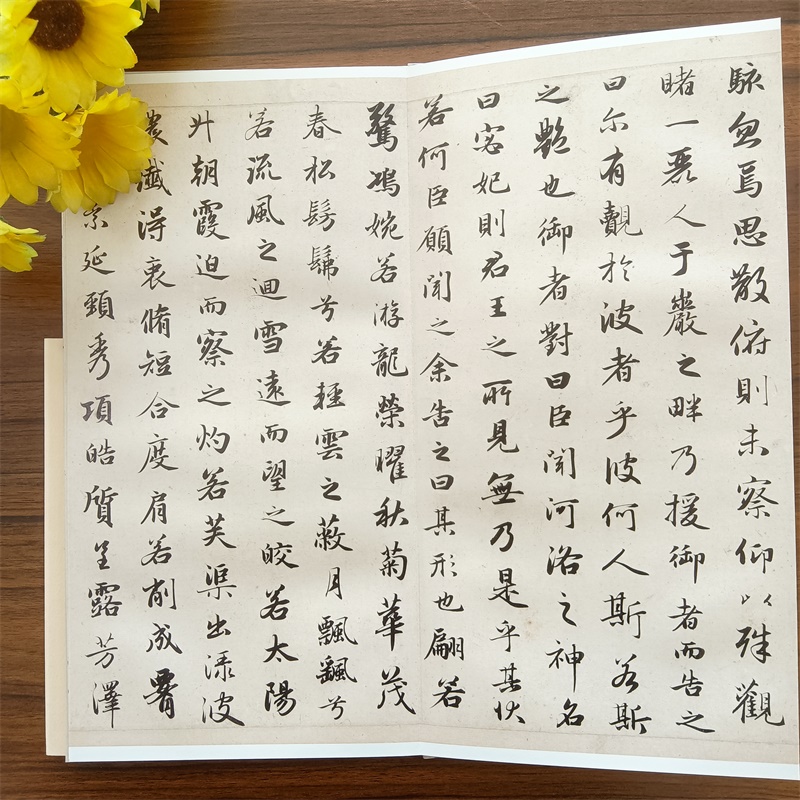 駭忽焉思散俯則未察仰以殊觀
睹一麗人于巖之畔乃援御者而告之
曰尔有覿於彼者乎彼何人斯若斯
之艷也御者對曰臣聞河洛之神名
曰宓妃則君王之所見無乃是乎其狀
若何臣願聞之余告之曰其形也翩若
驚鴻婉若游龍榮曜秋菊華茂
春松髣髴兮若輕雲之蔽月飄颻兮
若流風之迴雪遠而望之皎若太陽
升朝霞迫而察之灼若芙渠出淥波
纖得衷脩短合度肩若削成腰
素延頸秀項皓質呈露芳澤